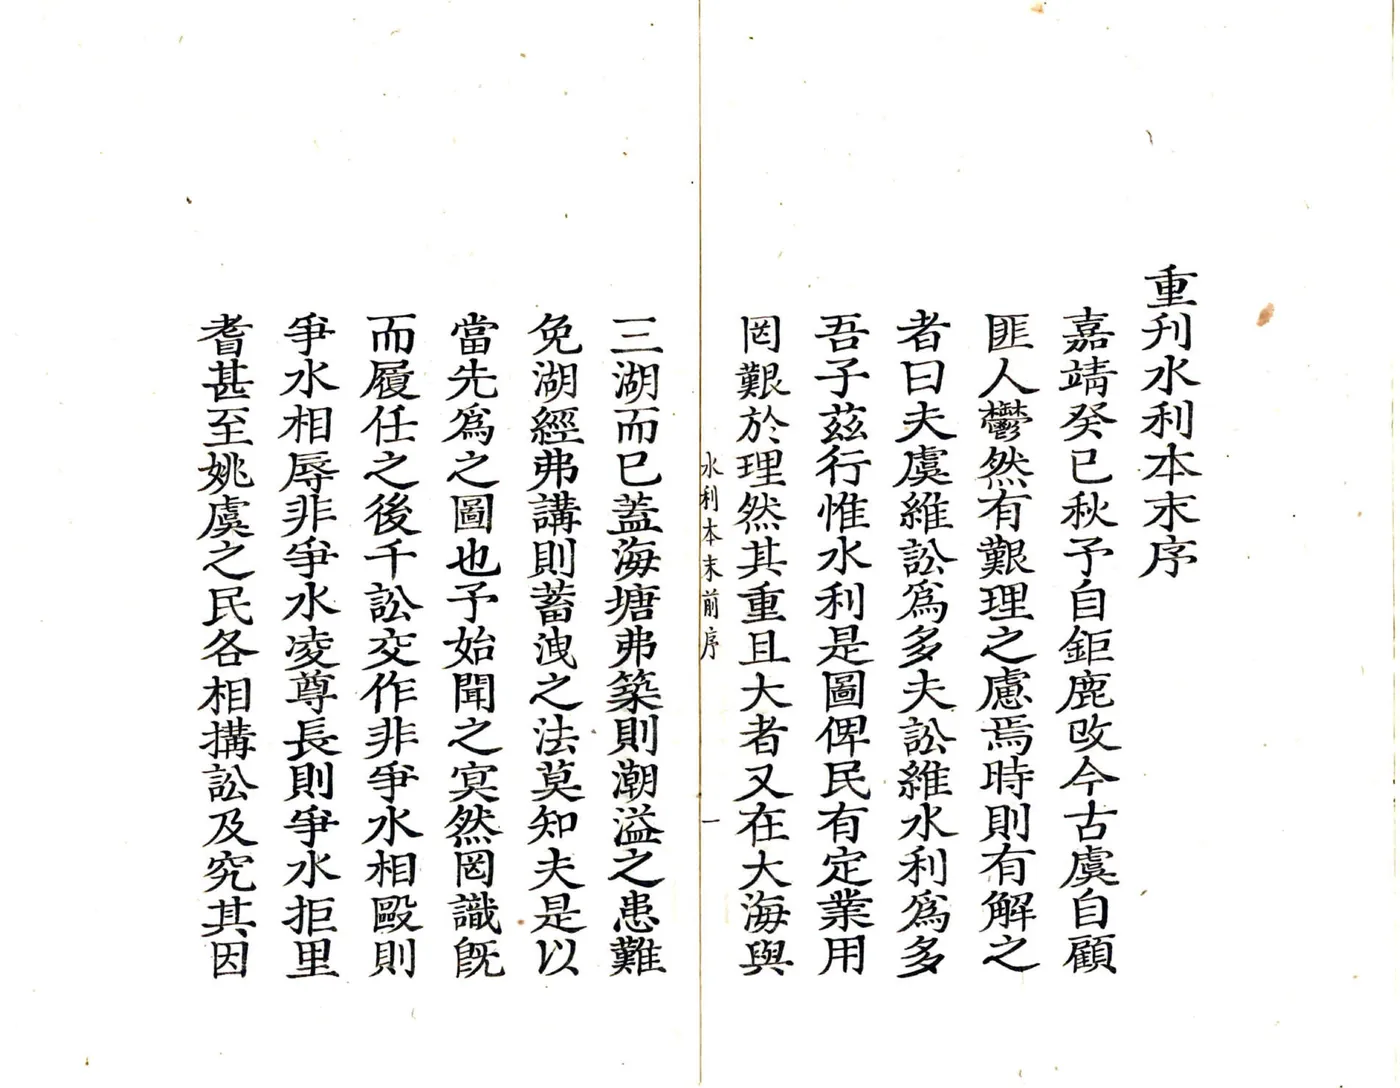 重刊水利本末序
嘉靖癸巳秋予自鉅鹿改今古虞自顧
匪人鬱然有艱理之慮焉時則有解之
者曰夫虞維訟爲多夫訟維水利爲多
吾子茲行惟水利是圖俾民有定業用
罔艱於理然其重且大者又在大海與
水利本末前序
一
三湖而已蓋海塘弗築則潮溢之患難
免湖經弗講則蓄洩之法莫知夫是以
當先爲之圖也予始聞之寞然罔識旣
而履任之後千訟交作非爭水相毆則
爭水相辱非爭水凌尊長則爭水拒里
耆甚至姚虞之民各相搆訟及究其因